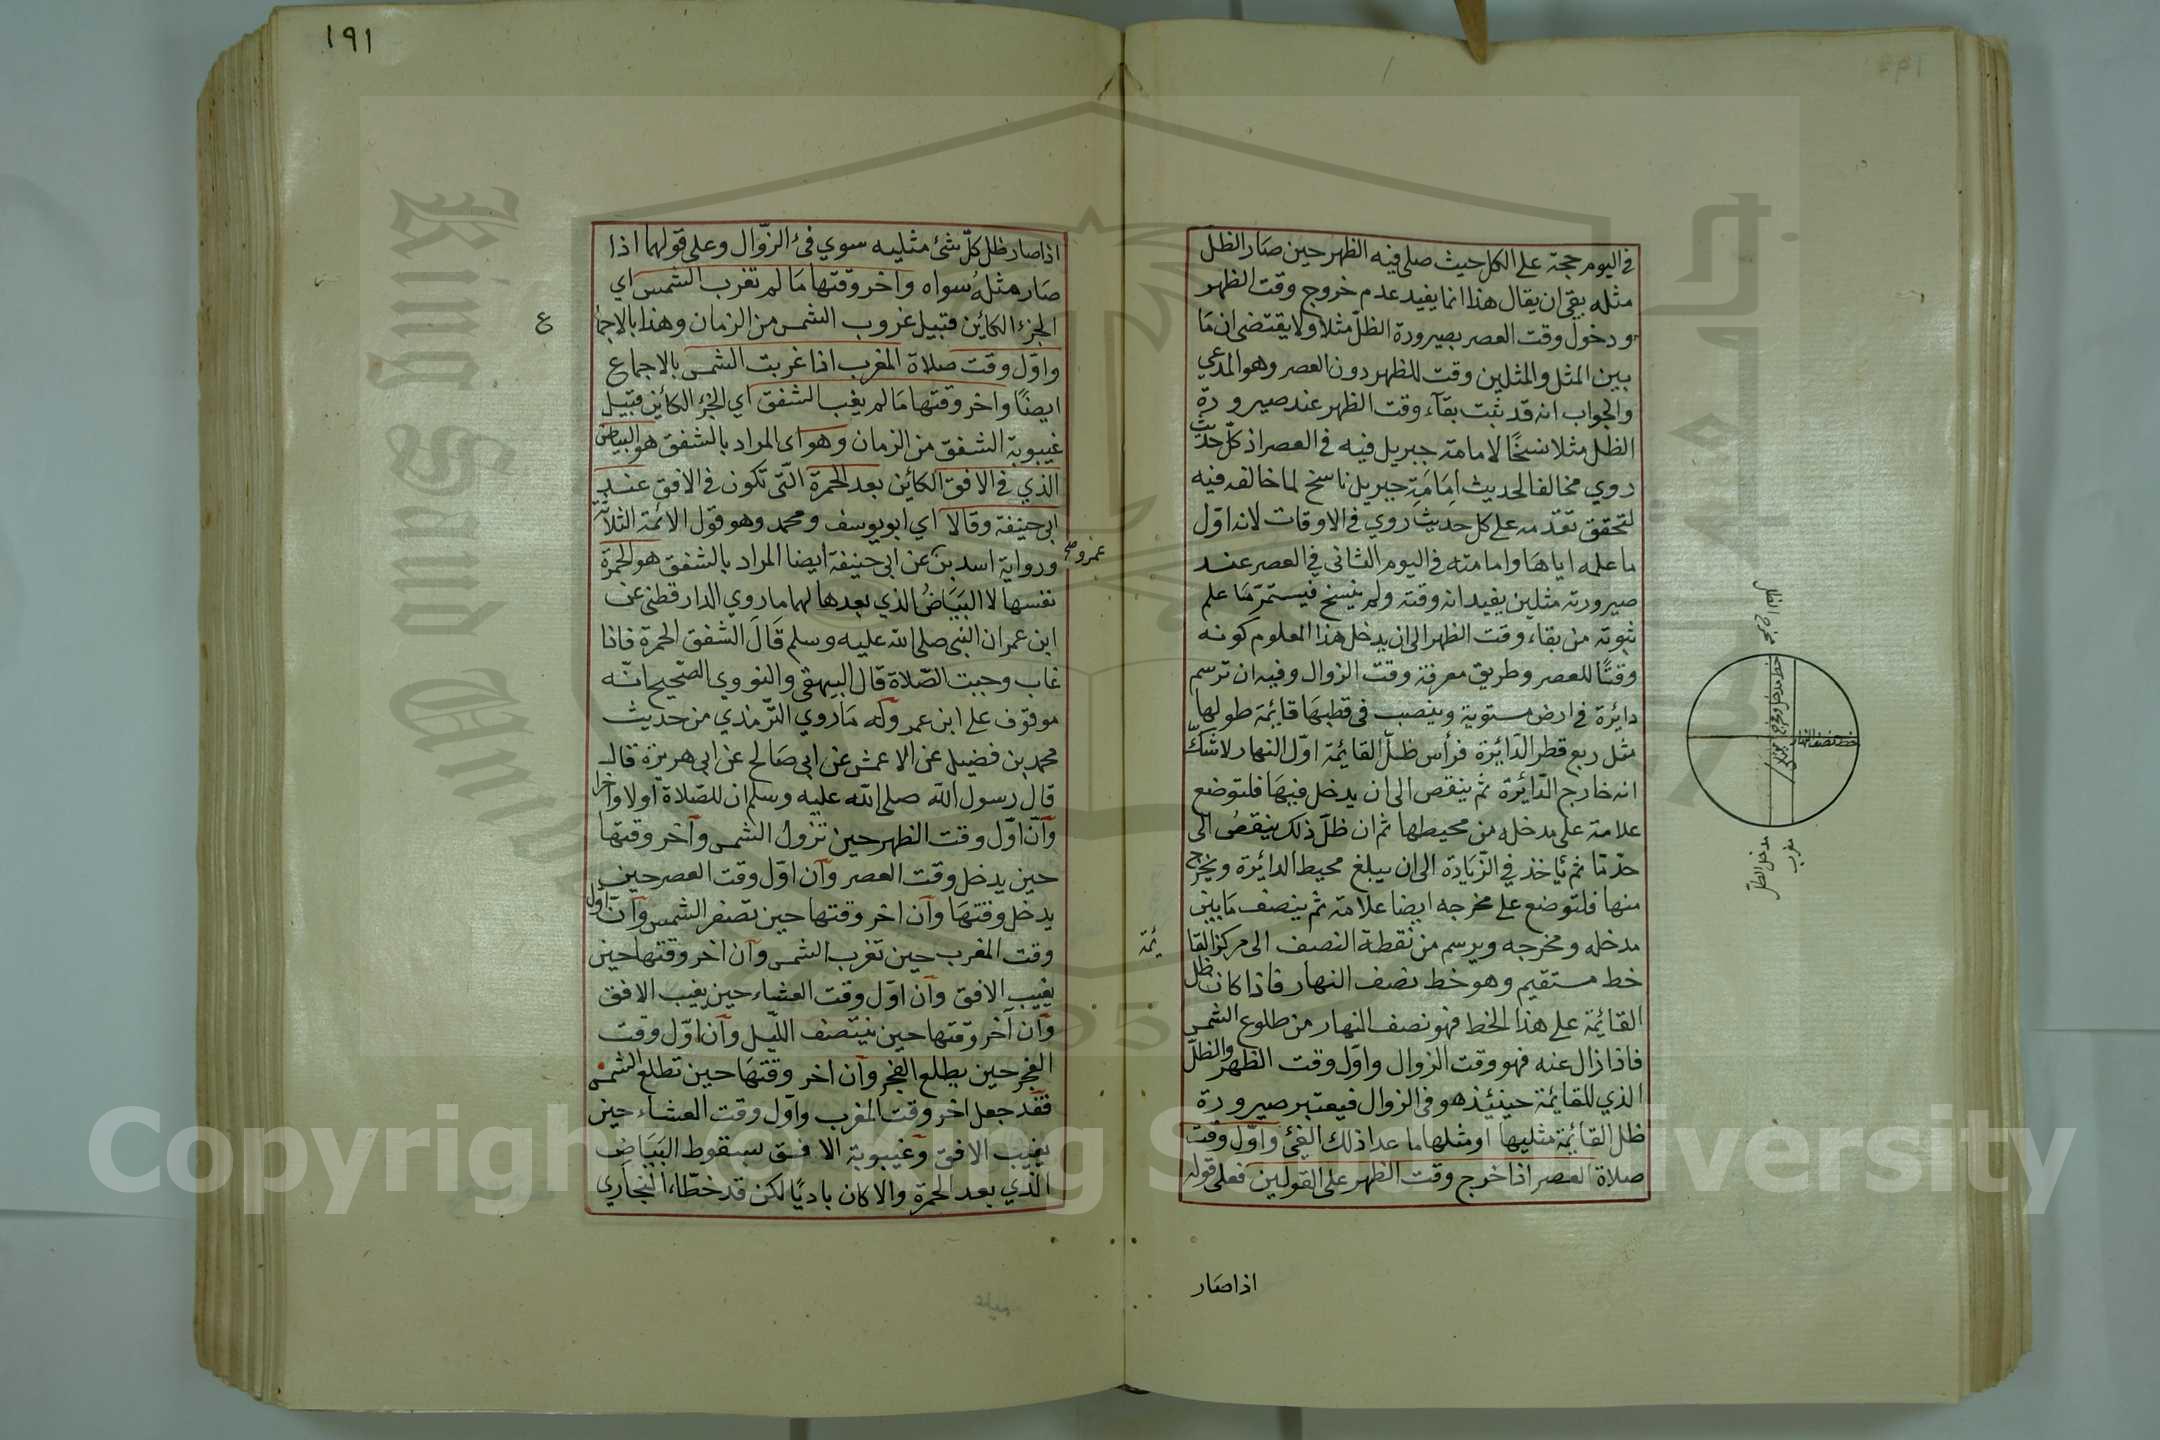 في اليوم حجة على الكل حيث صلى فيه الظهر حين صار الظل
مثله بقي ان يقال هذا انما يفيد عدم خروج وقت الظهر
ودخول وقت العصر بصيرورة الظل مثلا ولا يقتضي ان ما
بين المثل والمثلين وقت للظهر دون العصر وهو المدعي
والجواب انه قد ثبت بقآء وقت الظهر عند صيرورة
الظل مثلا نسخًا لامامة جبريل فيه في العصر اذ كلّ حديث
روي مخالفا لحديث اِمَامَةِ جبريل ناسخ لما خالفه فيه
لتحقق تقدّمه على كل حديث روي في الاوقات لانه اوّل
ما علمه اياهَا وامامته في اليوم الثاني في العصر عند
صيرورته مثلين يفيد انه وقته ولم ينسخ فيستمرّ مَا علم
ثبوته من بقاء وقت الظهر الى ان يدخل هذا المعلوم كونه
وقتًا للعصر وطريق معرفة وقت الزوال وفيه ان ترسم
دايرة في ارض مستوية وينصب في قطبهَا قايمة طولها
مثل ربع قطر الدّايرة فرأس ظلّ القايمة اوّل النهار لا شكّ
انه خارج الدّائرة ثم ينقص الى ان يدخل فيهَا فلتوضع
علامة على مدخله من محيطها ثم ان ظلّ ذلك ينقصُ الى
حدّ مّا ثم يأخذ في الزّيَادة الى ان يبلغ محيط الدائرة ويخرج
منها فلتوضع على مخرجه ايضا علامة ثم ينصف مَا بين
مدخله ومخرجه ويرسم من نقطة النصف الى مركز القا
ئمة
خط مستقيم وهو خط نصف النهار فاذا كان ظل
القائمة على هذا الخط فهو نصف النهار من طلوع الشمس
فاذا زال عنه فهو وقت الزوال واوّل وقت الظهر والظلّ
الذي للقائمة حينئذ هو فئ الزوال فيعتبر صيرورة
ظل القائمة مثليها او مثلها ما عدا ذلك الفئ واوّل وقت
صلاة العصر اذا خرج وقت الظهر على القولين فعلى قوله
اذا صَار
مخرج الظل
خط نصف النهار
مدخل الظل
مغرب
١٩١
اذا صار ظل كلّ شئ مثليه سوي فئ الزّوال وعلى قولهما اذا
صَار مثلهُ سواه واخر وقتها مَا لم تغرب الشمس اي
الجزء الكائن قبيل غروب الشمس من الزمان وهذا بالاجما
ع
واوّل وقت صلاة المغرب اذا غربت الشمس بالاجماع
ايضًا واخر وقتها مَا لم يغب الشفق اي الجزء الكائن قبيل
غيبوبة الشفق من الزمان وهو اى المراد بالشفق هو البياض
الذي في الافق الكائن بعد الحمرة التّى تكون في الافق عند
ابى حنيفة وقالا اي ابو يوسف ومحمد وهو قول الائمة الثلاثة
ورواية اسد بن عن ابى حنيفة ايضا المراد بالشفق هو الحمرة
عمرو صح
نفسها لا البَيَاضُ الذي بعدها لهما ما روي الدارقطنى عن
ابن عمر ان النبى صلى الله عليه وسلم قَالَ الشفق الحمرة فاذا
غاب وجبت الصّلاة قال البيهقى والنووي الصّحيح انّه
موقوف على ابن عمر وله مَا روي التّرمذي من حديث
محمد بن فضيل عن الاعمش عن ابى صَالح عن ابى هريرة قال
قال رسول الله صلى الله عليه وسلم ان للصّلاة اولا واخرا
وانّ اوّل وقت الظهر حين تزول الشمس وآخر وقتها
حين يدخل وقت العصر وان اوّل وقت العصر حين
يدخل وقتهَا وان اخر وقتها حين تصفر الشمس وان اول
وقت المغرب حين تغرب الشمس وان اخر وقتها حين
يغيب الافق وان اوّل وقت العشاء حين يغيب الافق
وان آخر وقتها حين ينتصف اللّيل وان اوّل وقت
الفجر حين يطلع الفجر وان اخر وقتهَا حين تطلع الشمس
فقد جعل اخر وقت المغرب واوّل وقت العشاء حين
يغيب الافق وغيبوبة الافق بسقوط البَيَاض
الذّي بعد الحمرة والا كان باديًا لكن قد خطّاء البخاري
King Saud University
1957
Copyright © King Saud University